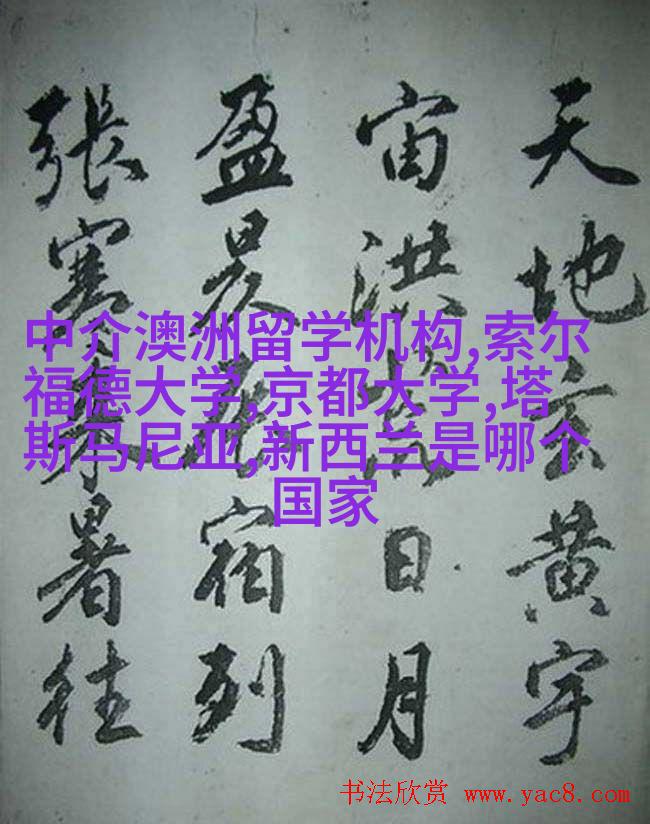 天地玄黄宇
宙洪荒日月
盈昃辰宿列
張寒来暑往
中介澳洲留学机构,索尔
福德大学,京都大学,塔
斯马尼亚,新西兰是哪个
国家
书法欣赏 www.yac8.com